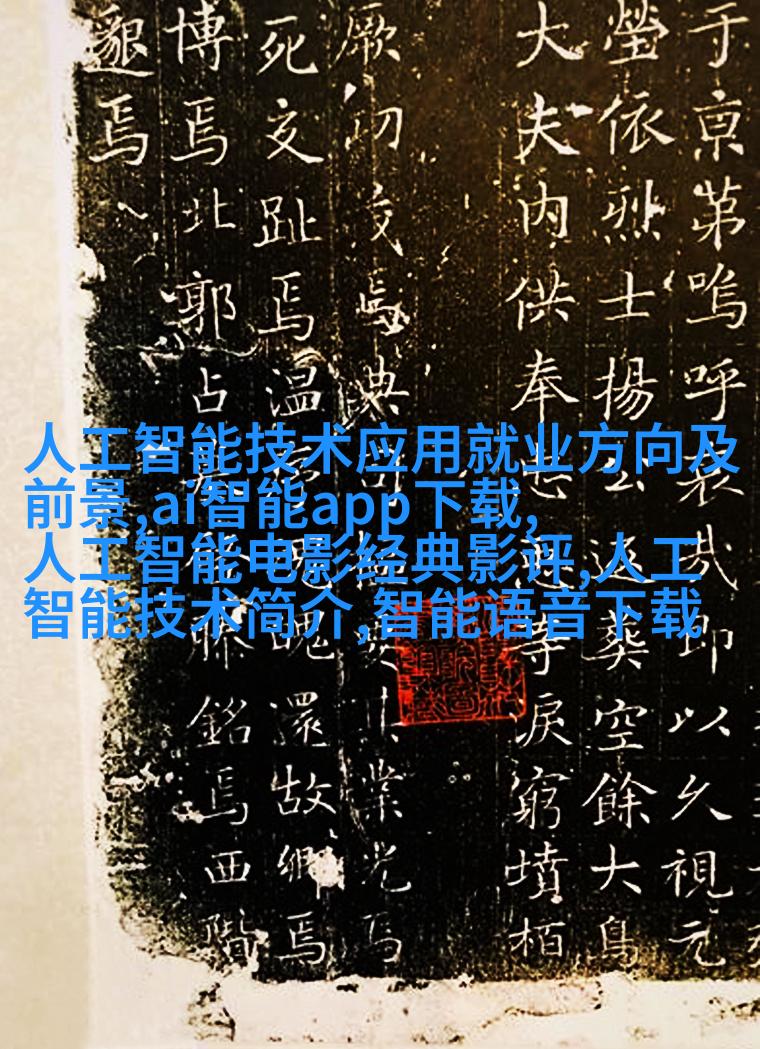 人工智能技术应用就业方向及
前景,ai智能app下载,
人工智能电影经典影评,人工
智能技术简介,智能语音下载
于京第嗚呼哀哉即以久視元
塋依烈士揚公返葬空餘大鳥
大夫內供奉悲寺淚窮墳栢
厥焉典業光焉
死交趾焉温魂還故鄉焉
博焉北郭占銘焉西階
邈焉